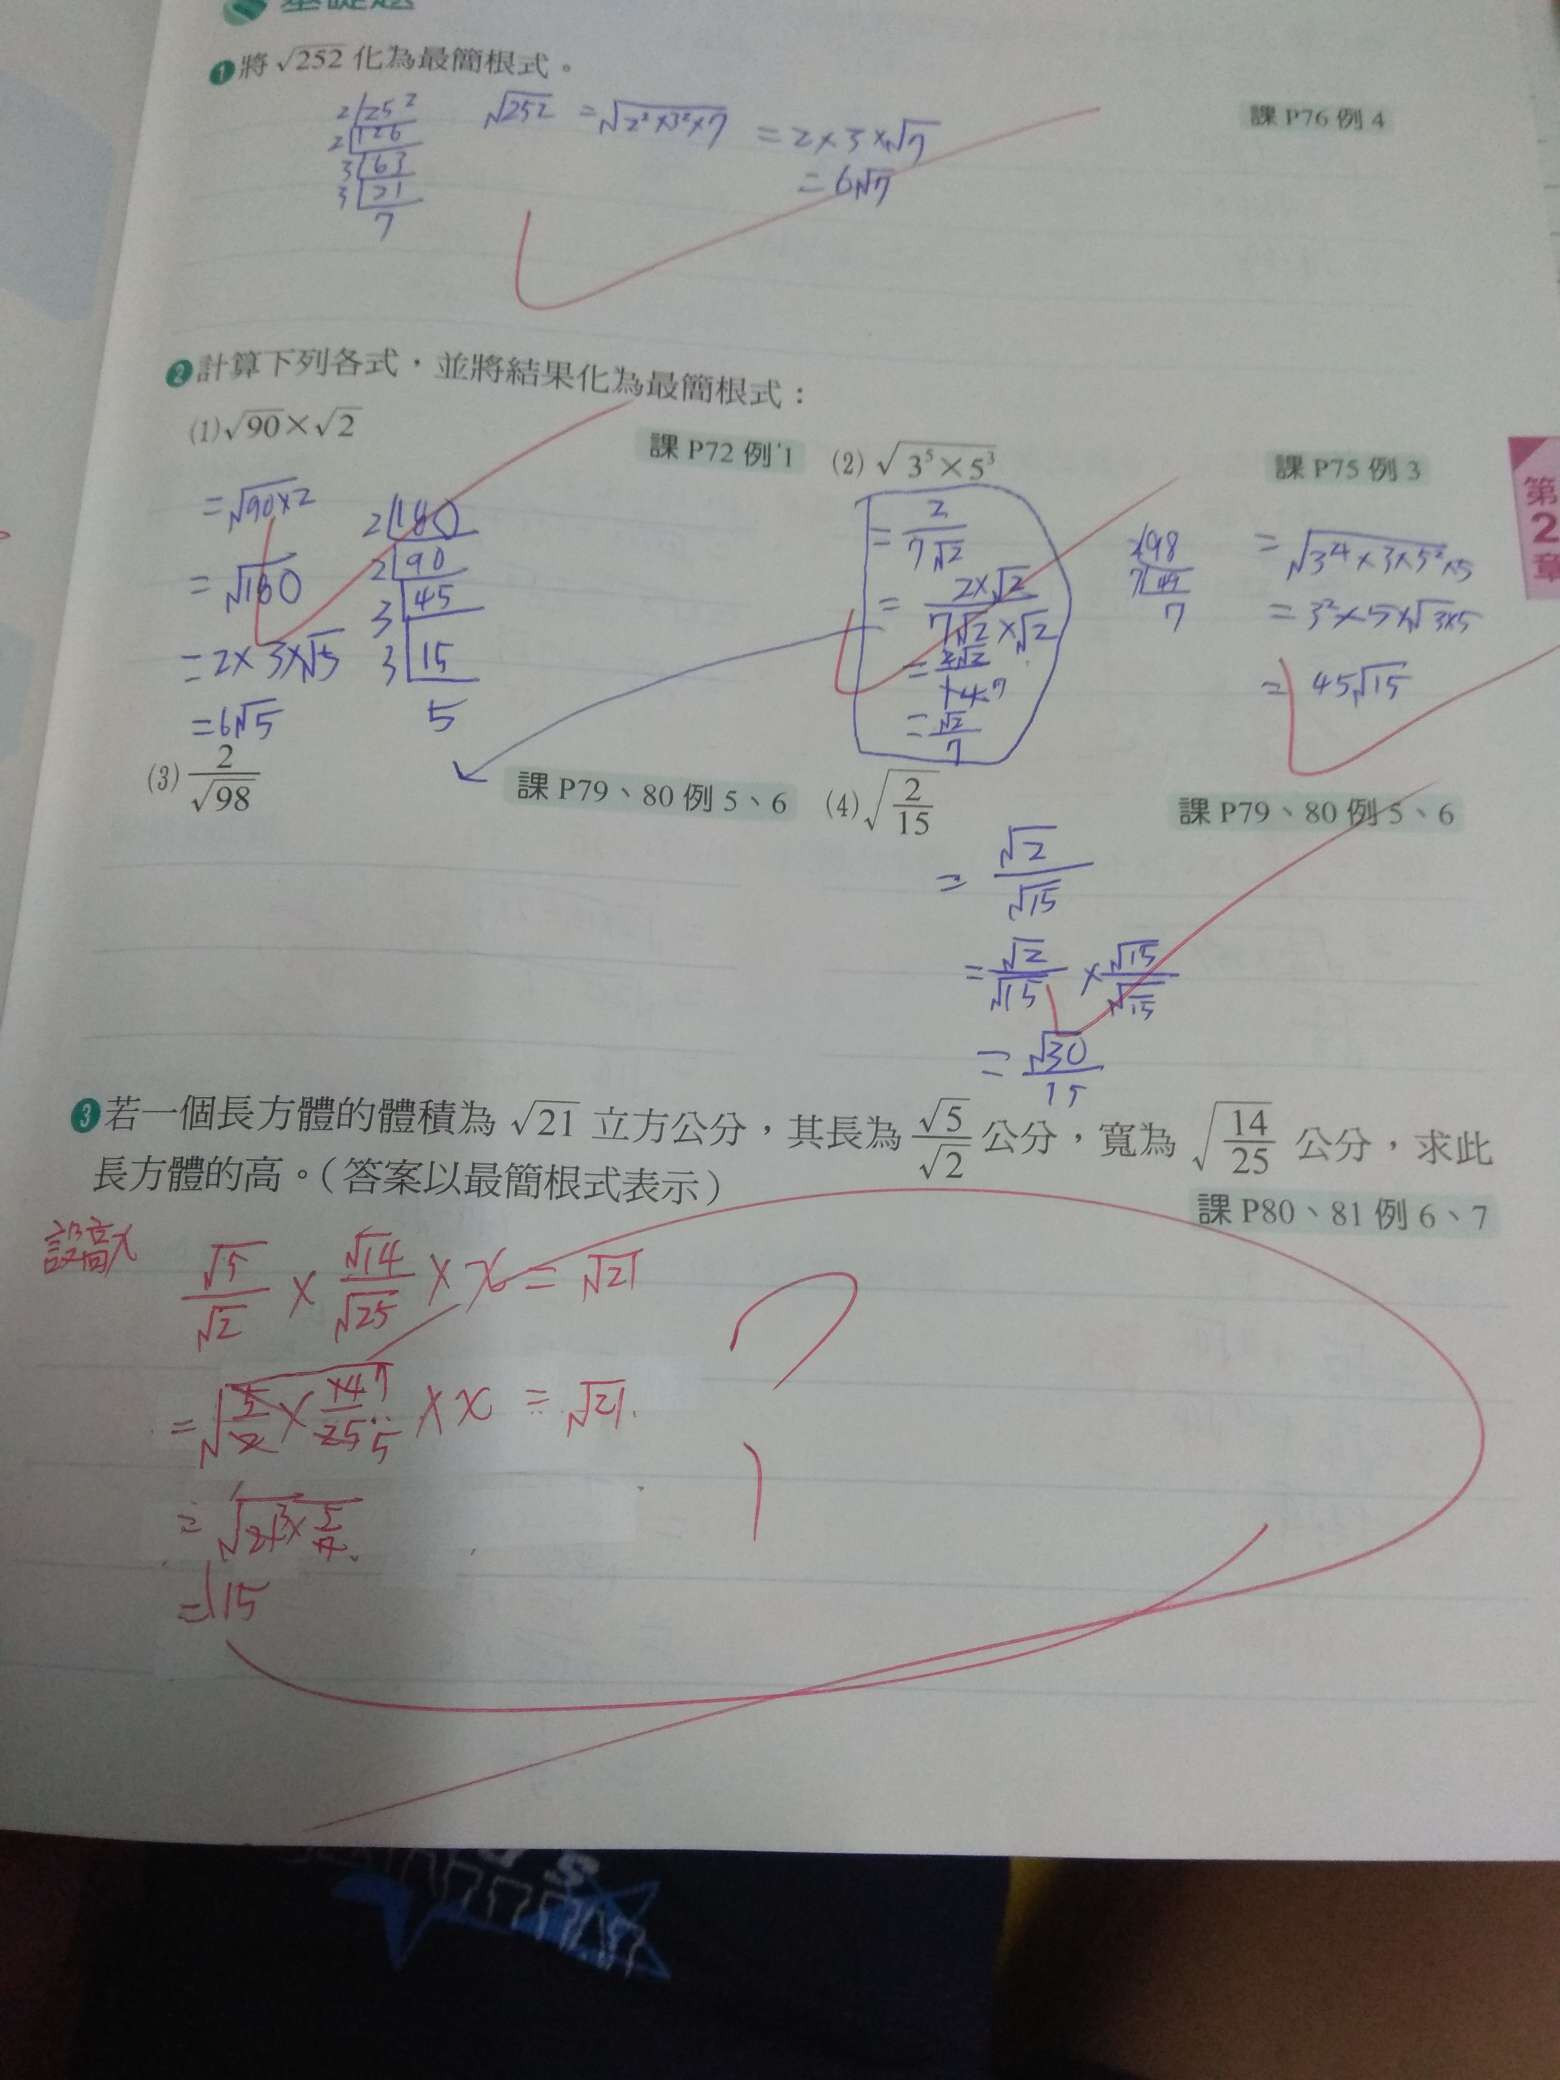 基礎題
❶將 √252 化為最簡根式。
課 P76 例 4
2 252
2 126
3 63
3 21
7
√252 = √2²×3²×7 = 2×3×√7
= 6√7
❷計算下列各式，並將結果化為最簡根式：
(1) √90×√2
課 P72 例 1
= √90×2
= √180
= 2×3×√5
= 6√5
2 180
2 90
3 45
3 15
5
(2) √3⁵×5³
課 P75 例 3
= √3⁴×3×5²×5
= 3²×5×√3×5
= 45√15
= 2/7√2
= 2×√2/7√2×√2
= 2√2/14 7
= √2/7
2 98
7 49
7
(3) 2/√98
課 P79、80 例 5、6
(4) √2/15
課 P79、80 例 5、6
= √2/√15
= √2/√15 × √15/√15
= √30/15
❸若一個長方體的體積為 √21 立方公分，其長為 √5/√2 公分，寬為 √14/25 公分，求此
長方體的高。（答案以最簡根式表示）
課 P80、81 例 6、7
設高x
√5/√2 × √14/√25 × x = √21
= √5/2 × 14 7/25 5 × x = √21
= √21 3 × 5/7
= √15
第
2
章